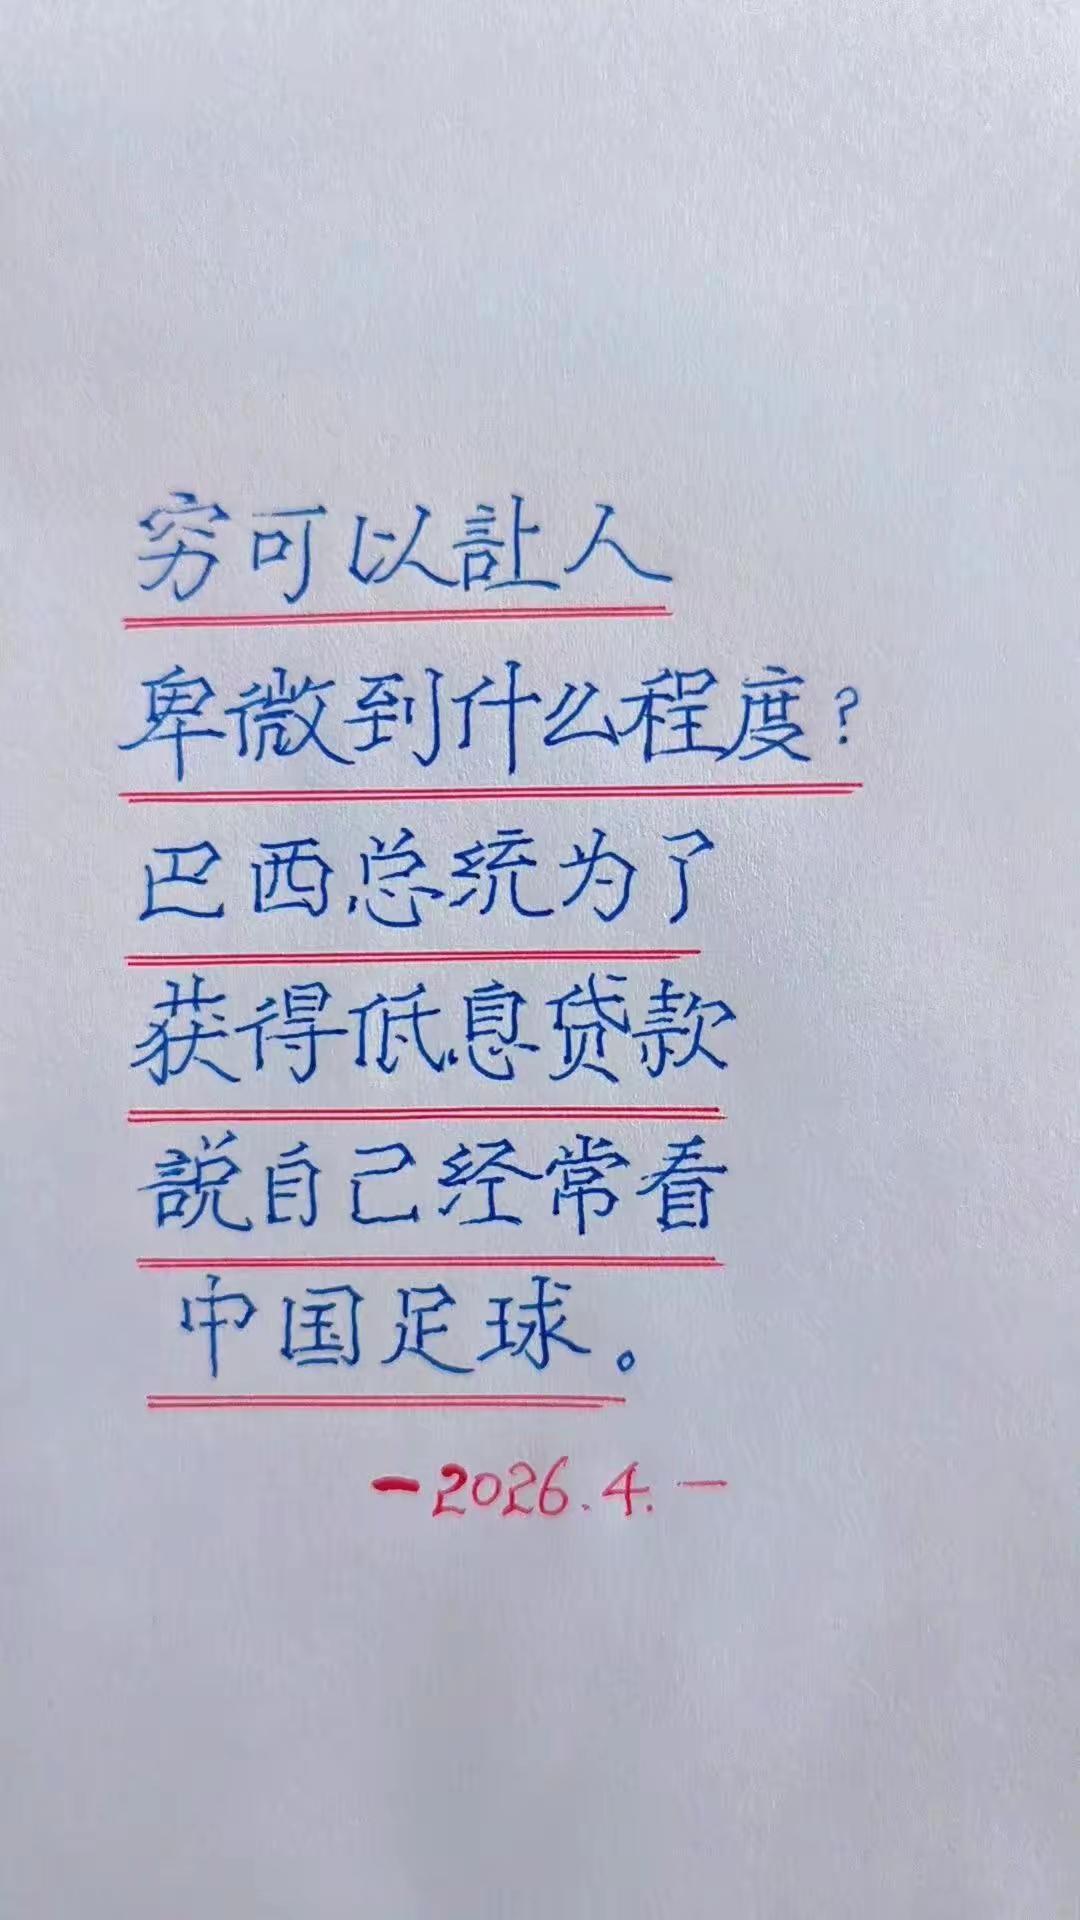 穷可以訨人
卑微到什么程度?
巴西总统为了
获得低息贷款
説自己经常看
中国足球。
-2026.4.-